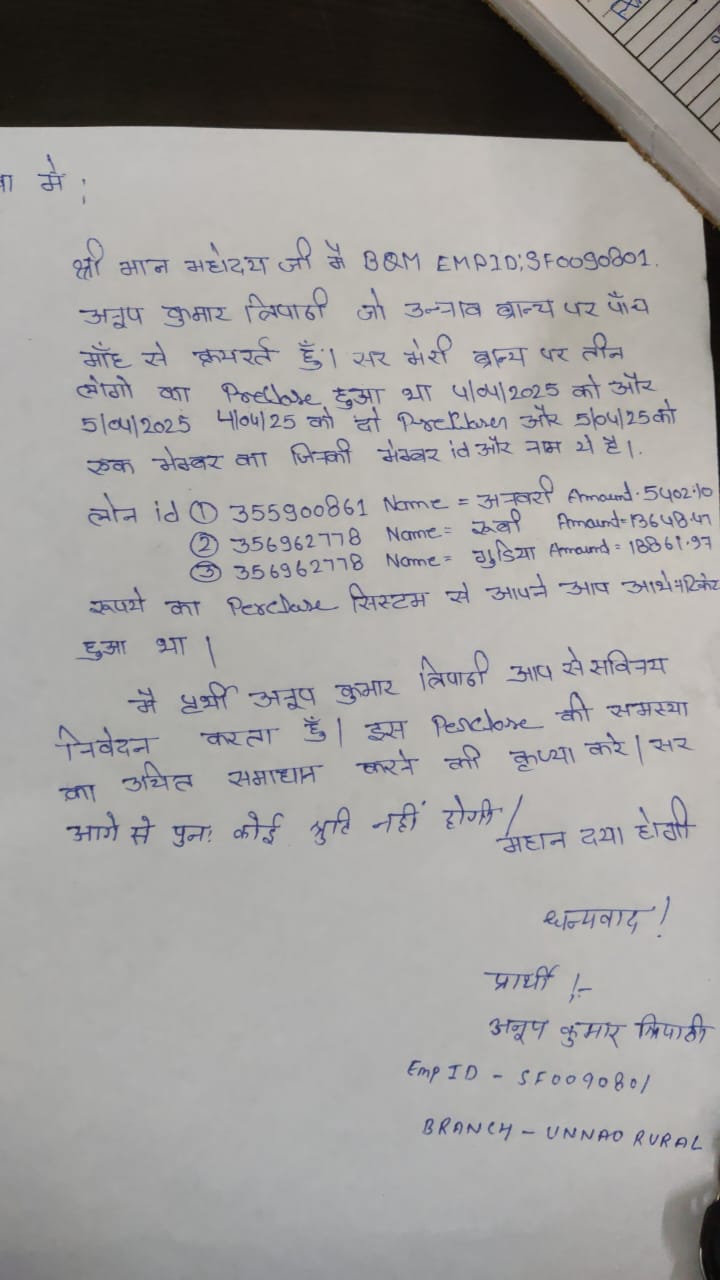 में ;
श्री मान महोदय जी मै BQM EMPID; SF0090801.
अनूप कुमार त्रिपाठी जो उन्नाव ब्रान्च पर पाँच
माँह से हूँ। सर मेरी ब्रान्च पर तीन
लोगो का PreClose हुआ था 4/04/2025 को और
5/04/2025 4/04/25 को दो और 5/04/25 को
एक मेम्बर का जिनकी मेम्बर id और नाम ये है।.
लोन id ① 355900861 Name = अनवरी Amaund. 5402.10
② 356962778 Name = रूबी Amaund = 13648.47
③ 356962778 Name = गुडिया Amaund = 18861.97
रूपये का Perclose सिस्टम से आपने आप
हुआ था।
मै अनूप कुमार त्रिपाठी आप से सविनय
निवेदन करता हूँ। इस Perclose की समस्या
का उचित समाधान करने की कृप्या करे। सर
आगे से पुनः कोई त्रुटि नहीं होगी।
महान दया होगी
धन्यवाद!
प्रार्थी !-
अनूप कुमार त्रिपाठी
Emp ID - SF0090801
BRANCH - UNNAO RURAL